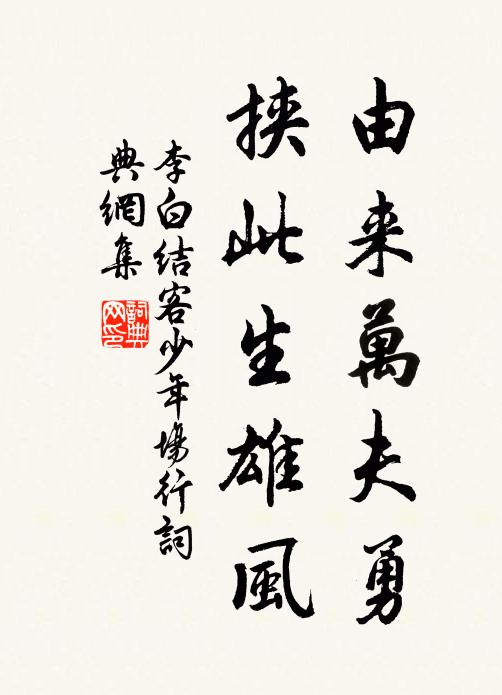 由来萬夫勇
挾此生雄風
李白结客少年場行詞
典網集
詞典
网印